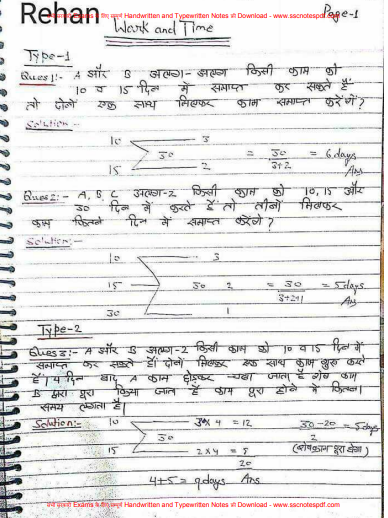 सभी एकदिवसीय Exams के लिए सम्पूर्ण Handwritten and Typewritten Notes की Download - www.sscnotespdf.com
Rehan
Page-1
Work and Time
Type-1
Ques1:- A और B अलग-अलग किसी काम को
10 व 15 दिन में समाप्त कर सकते हैं
तो दोनों एक साथ मिलकर काम समाप्त करेंगे?
Solution -
10 3
30 = 30/3+2 = 6 days
15 2 Ans
Ques2:- A, B C अलग-2 किसी काम को 10, 15 और
30 दिन में करते हैं तो तीनों मिलकर
काम कितने दिन में समाप्त करेंगे?
Solution:-
10 3
15 30 2 = 30/3+2+1 = 5 days
30 1 Ans
Type-2
Ques3:- A और B अलग-2 किसी काम को 10 व 15 दिन में
समाप्त कर सकते हैं। दोनों मिलकर एक साथ काम शुरू करते
हैं। 4 दिन बाद A काम छोड़कर चला जाता है शेष काम
B द्वारा पूरा किया जाता है काम पूरा होने में कितना
समय लगता है।
Solution:- 10 3 x 4 = 12 30-20/2 = 5 days
30
15 2 x 4 = 8 (शेष काम पूरा होगा)
20
4+5 = 9 days Ans
Exams के लिए सम्पूर्ण Handwritten and Typewritten Notes की Download - www.sscnotespdf.com